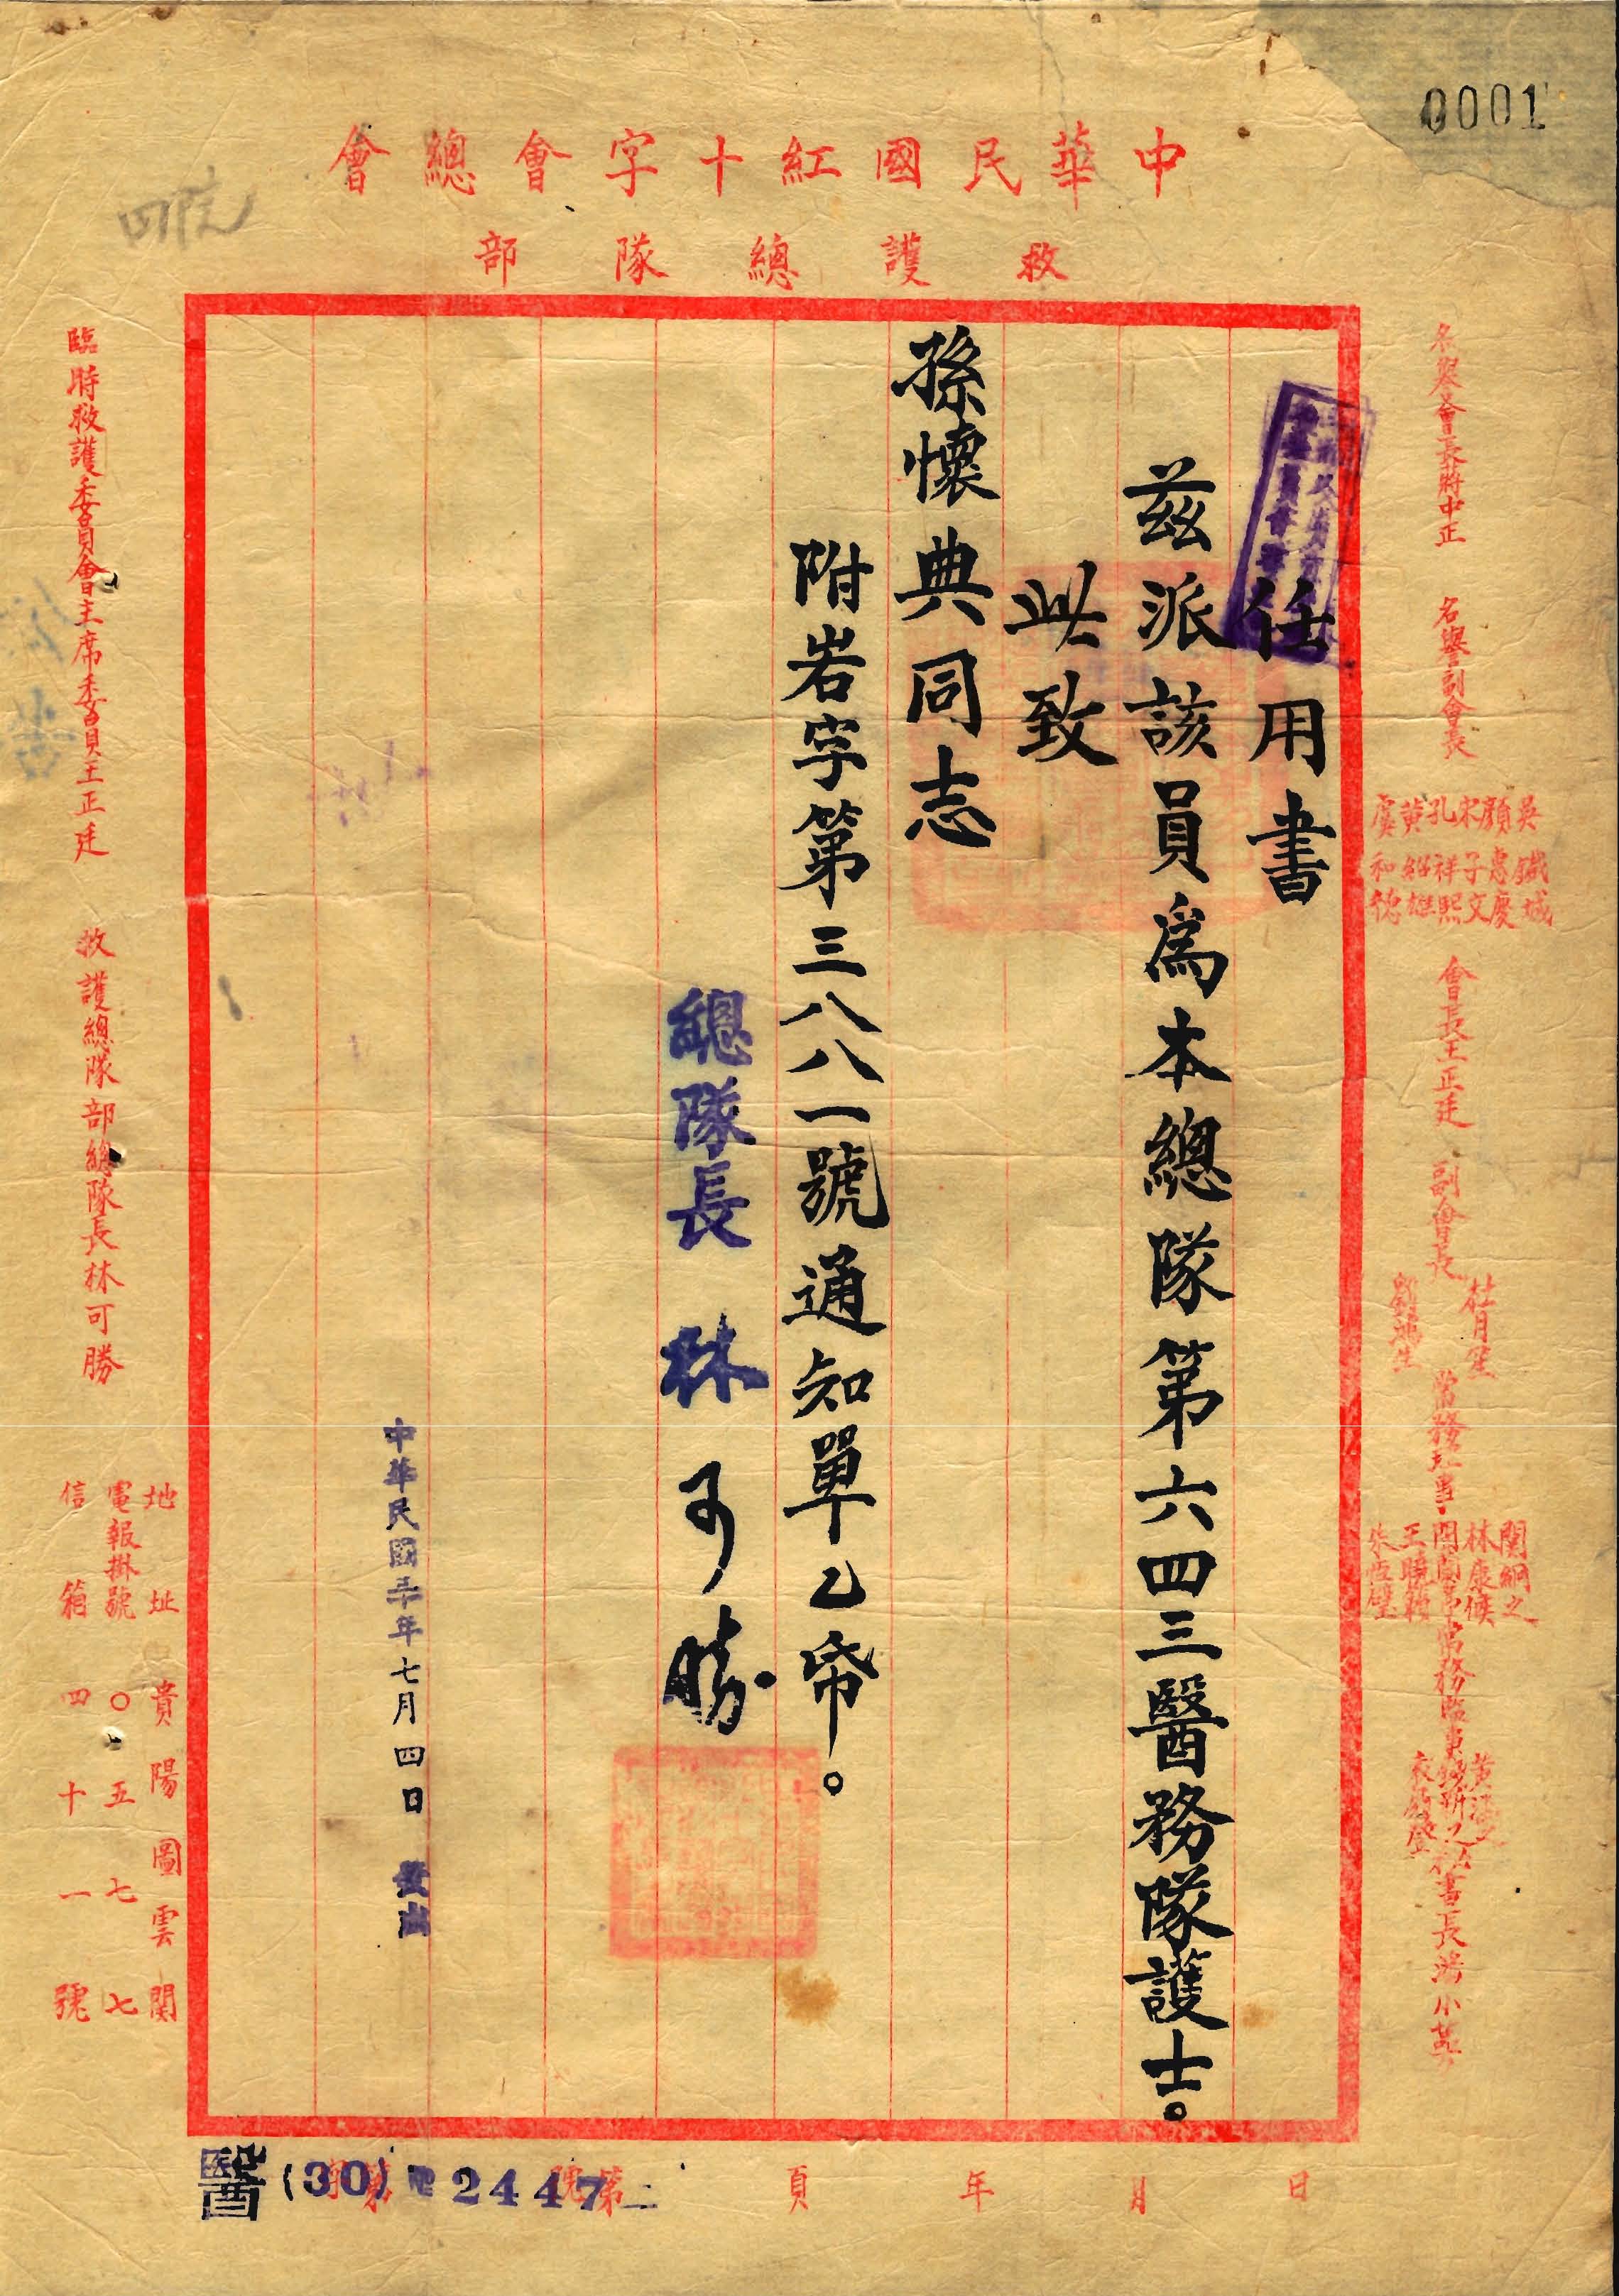 0001
中華民國紅十字會總會
救護總隊部
四院
名譽會長蔣中正
名譽副會長
吳鐵城
顏惠慶
宋子文
孔祥熙
黃紹雄
虞和德
會長王正廷
副會長
杜月笙
劉鴻生
常務理事
關絅之
林康侯
聞蘭亭
王曉籟
朱恆璧
常務監事
錢新之
秘書長潘小萼
任用書
茲派該員為本總隊第六四三醫務隊護士。
此致
孫懷典同志
附岩字第三八八一號通知單乙帋。
總隊長 林可勝
中華民國三十年七月四日 發出
臨時救護委員會主席委員王正廷
救護總隊部總隊長林可勝
地址 貴陽圖雲關
電報掛號 〇五七七
信箱 四十一號
醫(30)字第2447號
第二頁
年 月 日